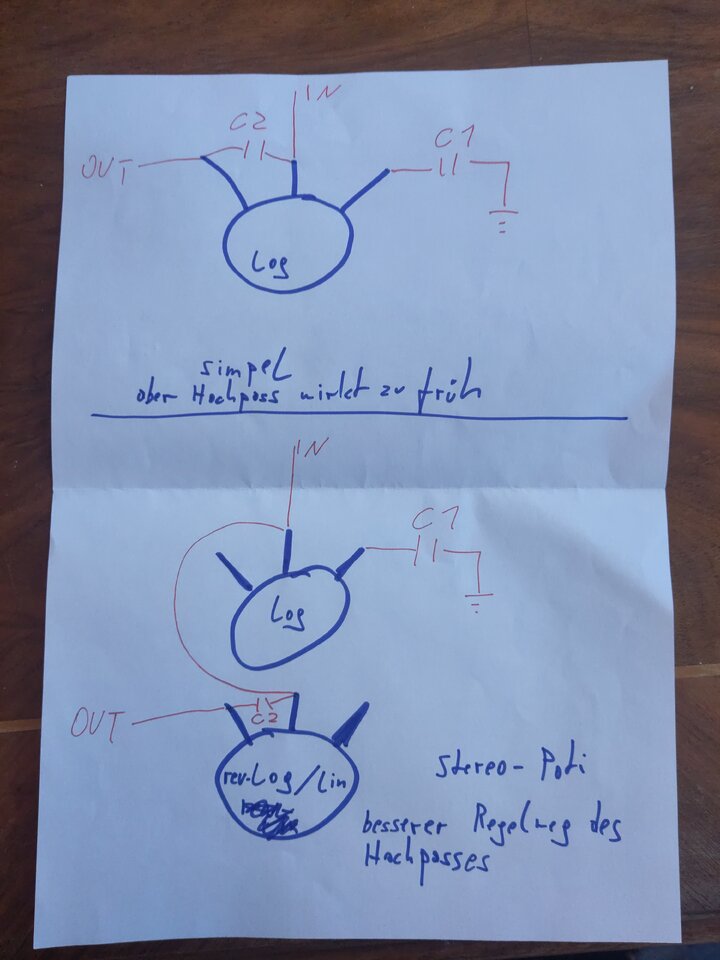 IN
C2
C1
OUT
Log
simpel
aber Hochpass wirkt zu früh
IN
C1
Log
C2
OUT
rev.Log/Lin
Stereo-Poti
besserer Regelweg des
Hochpasses